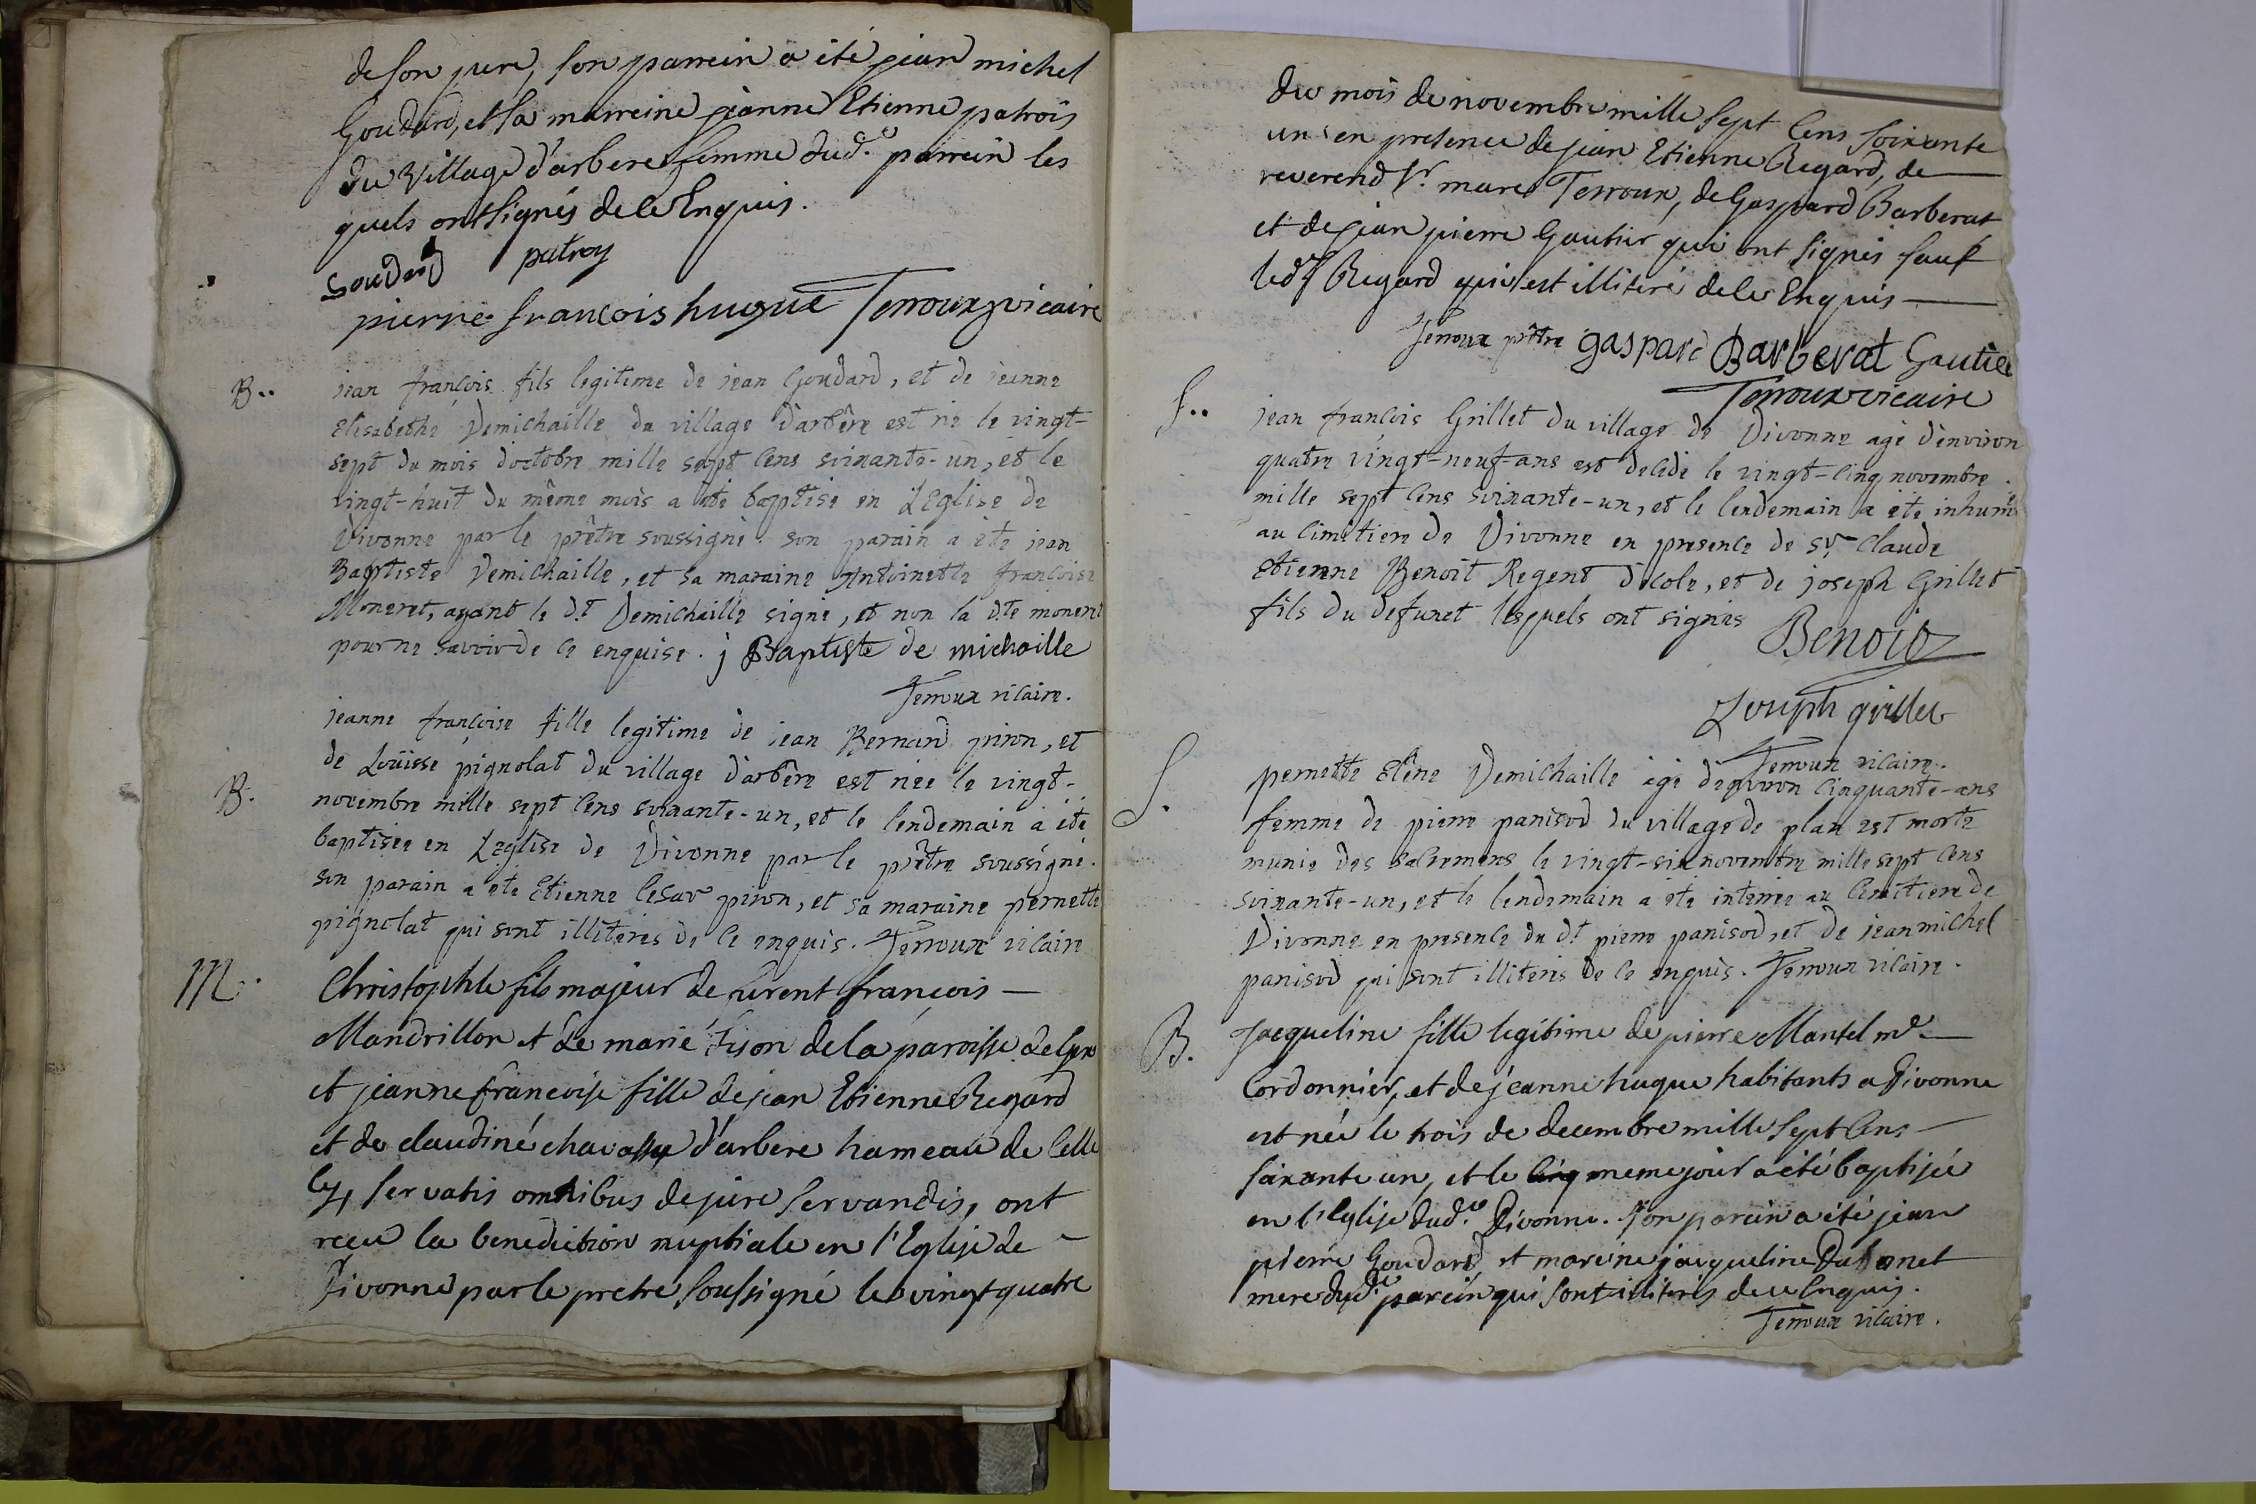 de son pere, son parrein a été jean michel
Goudard, et sa marreine jeanne Etienne patrois
du Village d'arbere femme dud.^t parrein les
quels ont signés de ce Enquis.
Goudard patroy
pierre françois huque Terroux vicaire
B.. jean françois fils legitime de jean Goudard, et de jeanne
Elisabethe Demichaille du village d'arbêre est né le vingt-
sept du mois d'octobre mille sept cens soixante-un, et le
vingt-huit du même mois a été baptisé en L'Eglise de
Divonne par le prêtre soussigné. son parain a été jean
Baptiste Demichaille, et sa maraine Antoinette françoise
Moneret, ayant le d.t Demichaille signé, et non la d.te moneret
pour ne savoir de ce enquise. j Baptiste de michaille
Terroux vicaire.
B. jeanne françoise fille legitime de jean Bernard piron, et
de Loüisse pignolat du village d'arbêre est née le vingt-
novembre mille sept cens soixante-un, et le lendemain a été
baptisée en L'eglise de Divonne par le prêtre soussigné.
son parain a été Etienne Cesar piron, et sa maraine pernette
pignolat qui sont illiterés de ce enquis. Terroux vicaire
M. Christophle fils majeur de furent françois —
Mandrillon et de marie tison de la paroisse de Gex
et jeanne francoise fille de jean Etienne Regard
et de claudine chavassu d'arbere hameau de Celle
Cy, servatis omnibus de jure servandis, ont
reçu la benediction nuptiale en l'Eglise de
Divonne par le pretre soussigné le vingt quatre
du mois de novembre mille sept Cens soixante
un en presence de jean Etienne Regard, de —
reverend s.r marc Terroux, de Gaspard Barberat
et de jean pierre Gautier qui ont signés sauf
led.t Regard qui est illiteré de ce Enquis —
Terroux prêtre gaspard Barberat Gautier
Terroux vicaire
S.. jean françois Grillet du village de Divonne agé d'environ
quatre vingt-neuf-ans est decedé le vingt-cinq novembre
mille sept cens soixante-un, et le lendemain a été inhumé
au cimetiere de Divonne en presence de s.r Claude
Etienne Benoit Regent d'ecole, et de joseph Grillet
fils du defunct lesquels ont signés
Benoit
Jouseph grillet
Terroux vicaire.
S. pernette Elêne Demichaille agé d'environ cinquante-ans
femme de pierre panisod du village de plan est morte
munie des sacremens le vingt-six novembre mille sept cens
soixante-un, et le lendemain a été interrée au cimetiere de
Divonne en presence du d.t pierre panisod, et de jean michel
panisod qui sont illiterés de ce enquis. Terroux vicaire.
B. Jacqueline fille legitime de pierre Mantel m.e —
Cordonnier, et de jeanne huque habitants a Divonne
est née le trois de decembre mille sept Cens —
soixante un, et le cinq meme jour a été baptisée
en l'Eglise dud.^t Divonne. Son parein a été jean
pierre Goudard, et mareine jacqueline
mere dud.t parein qui sont illiterés de ce Enquis.
Terroux vicaire.